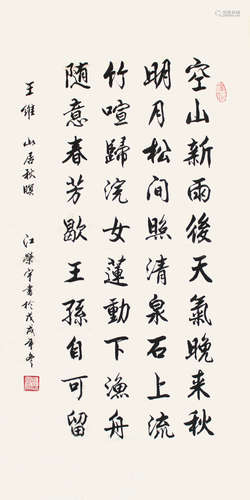 空山新雨後天氣晚来秋
明月松间照清泉石上流
竹喧歸浣女蓮動下漁舟
随意春芳歇王孫自可留
王維 山居秋暝
江榮宇書於戊戌年冬